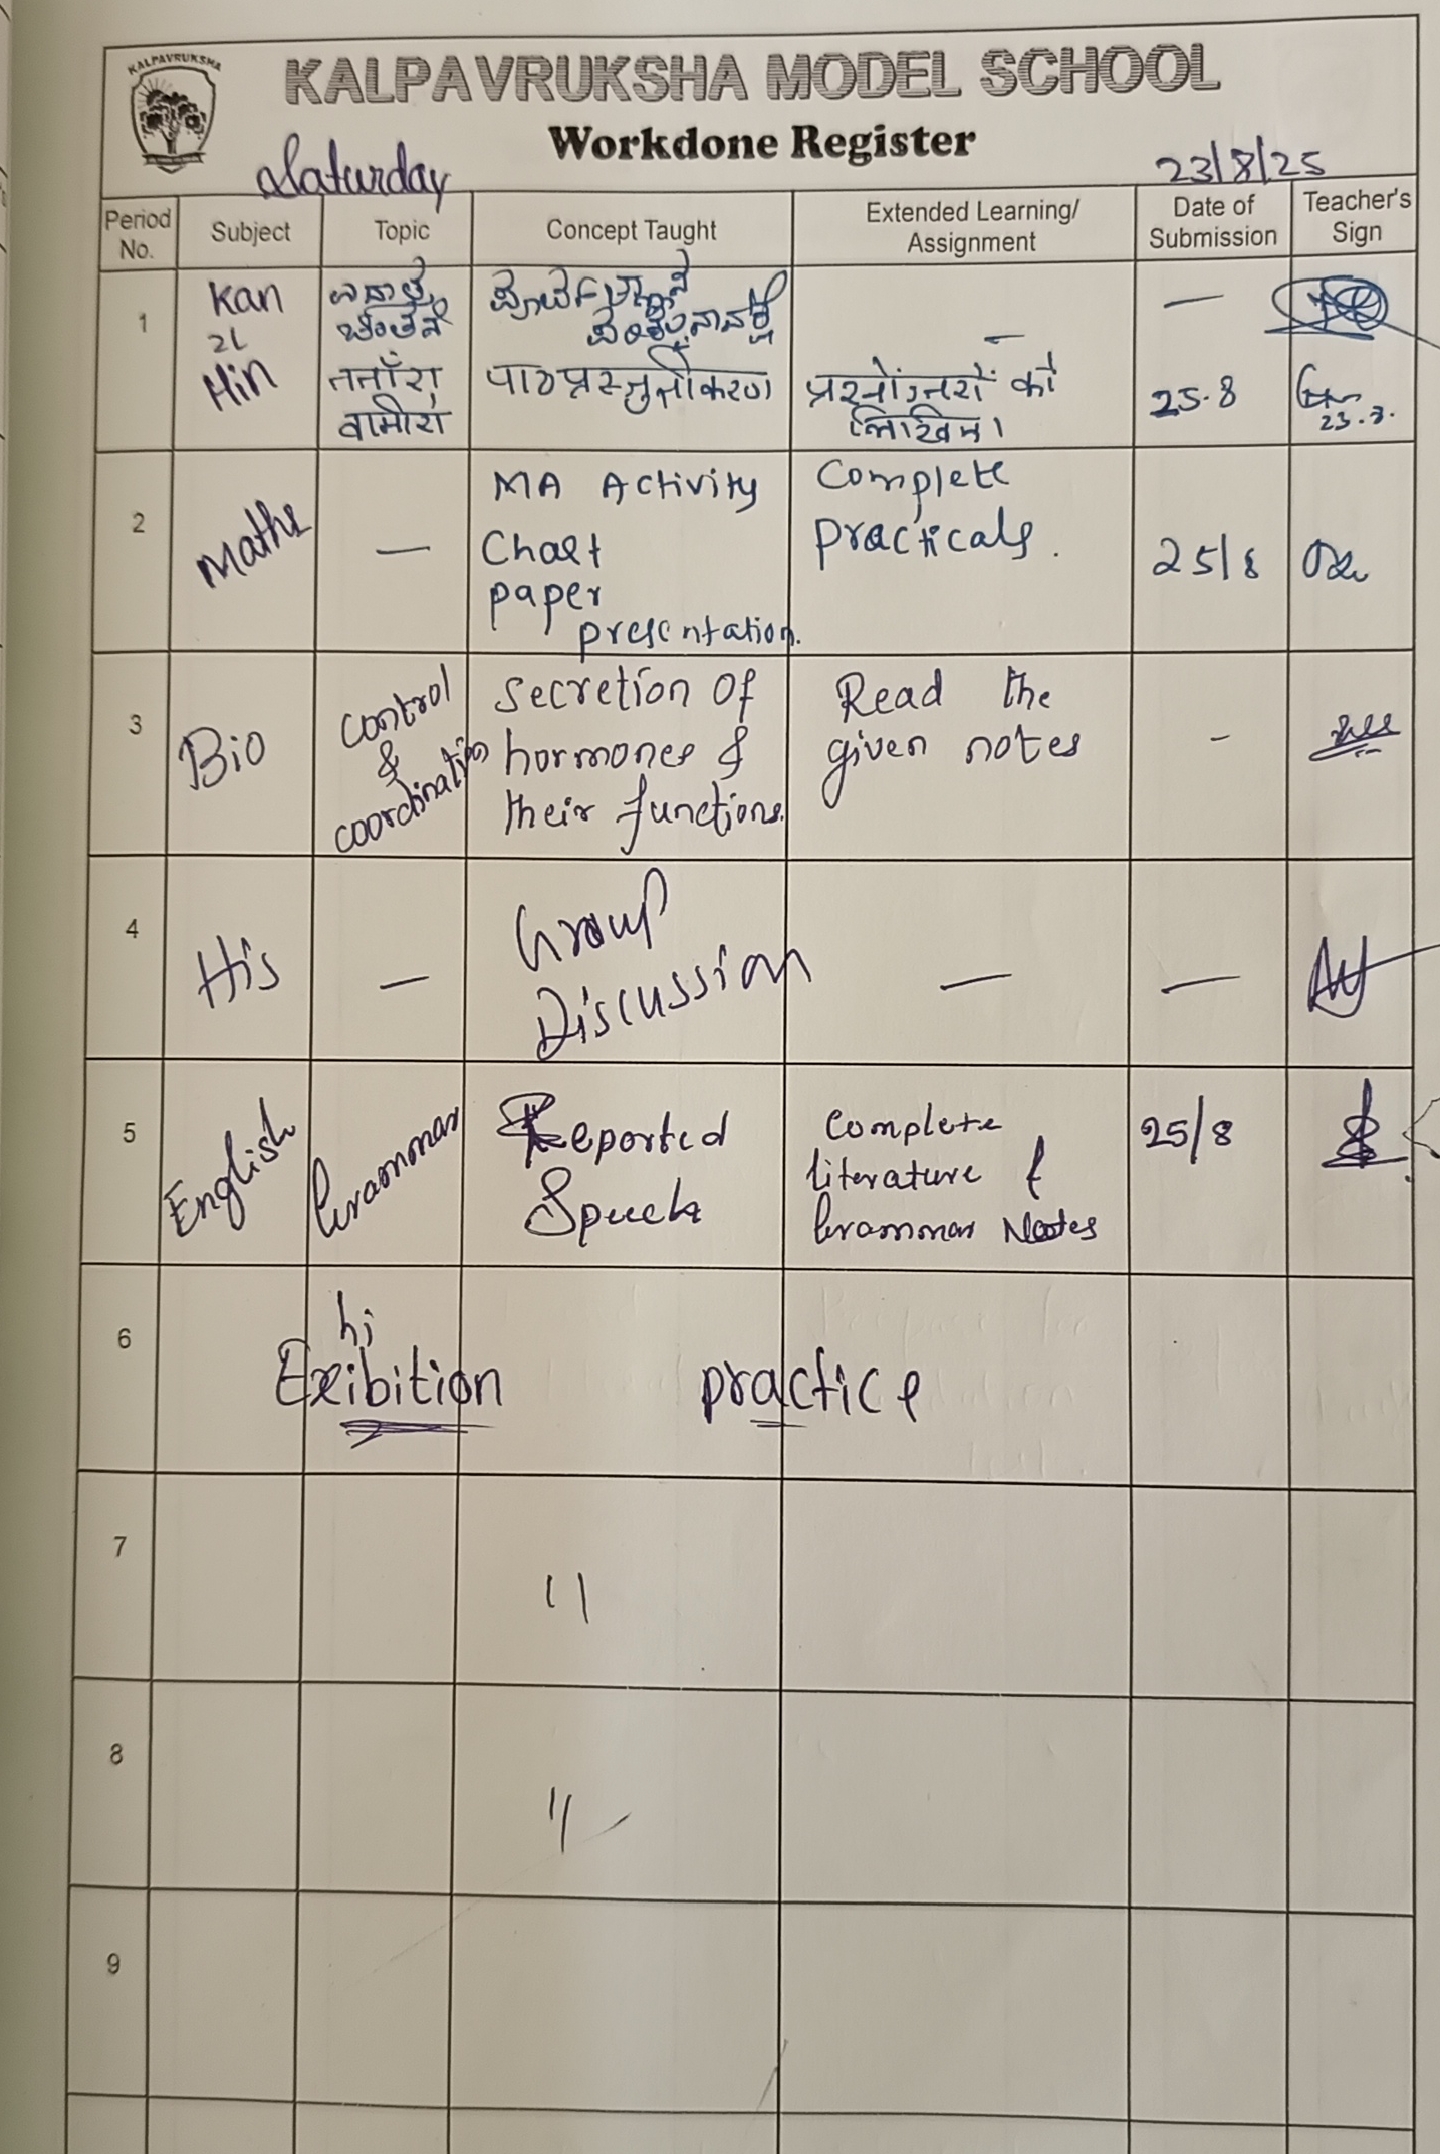 KALPAVRUKSHA
KALPAVRUKSHA MODEL SCHOOL
Workdone Register
Saturday 23/8/25
Period No. Subject Topic Concept Taught Extended Learning/ Assignment Date of Submission Teacher's Sign
1 Kan — —
2L
Hin तताँरा पाठप्रस्तुतीकरण प्रश्नोंत्तरों को 25.8
वामीरो लिखिए।
2 Maths — MA Activity Complete
Chart practicals. 25/8
paper
presentation.
3 Bio control Secretion of Read the
& hormones & given notes -
coordination their functions.
4 His — Group — —
Discussion
5 English Grammar Reported Complete 25/8
Speech literature &
Grammar Notes
6 hi
Exibition practice
7 "
8 "
9